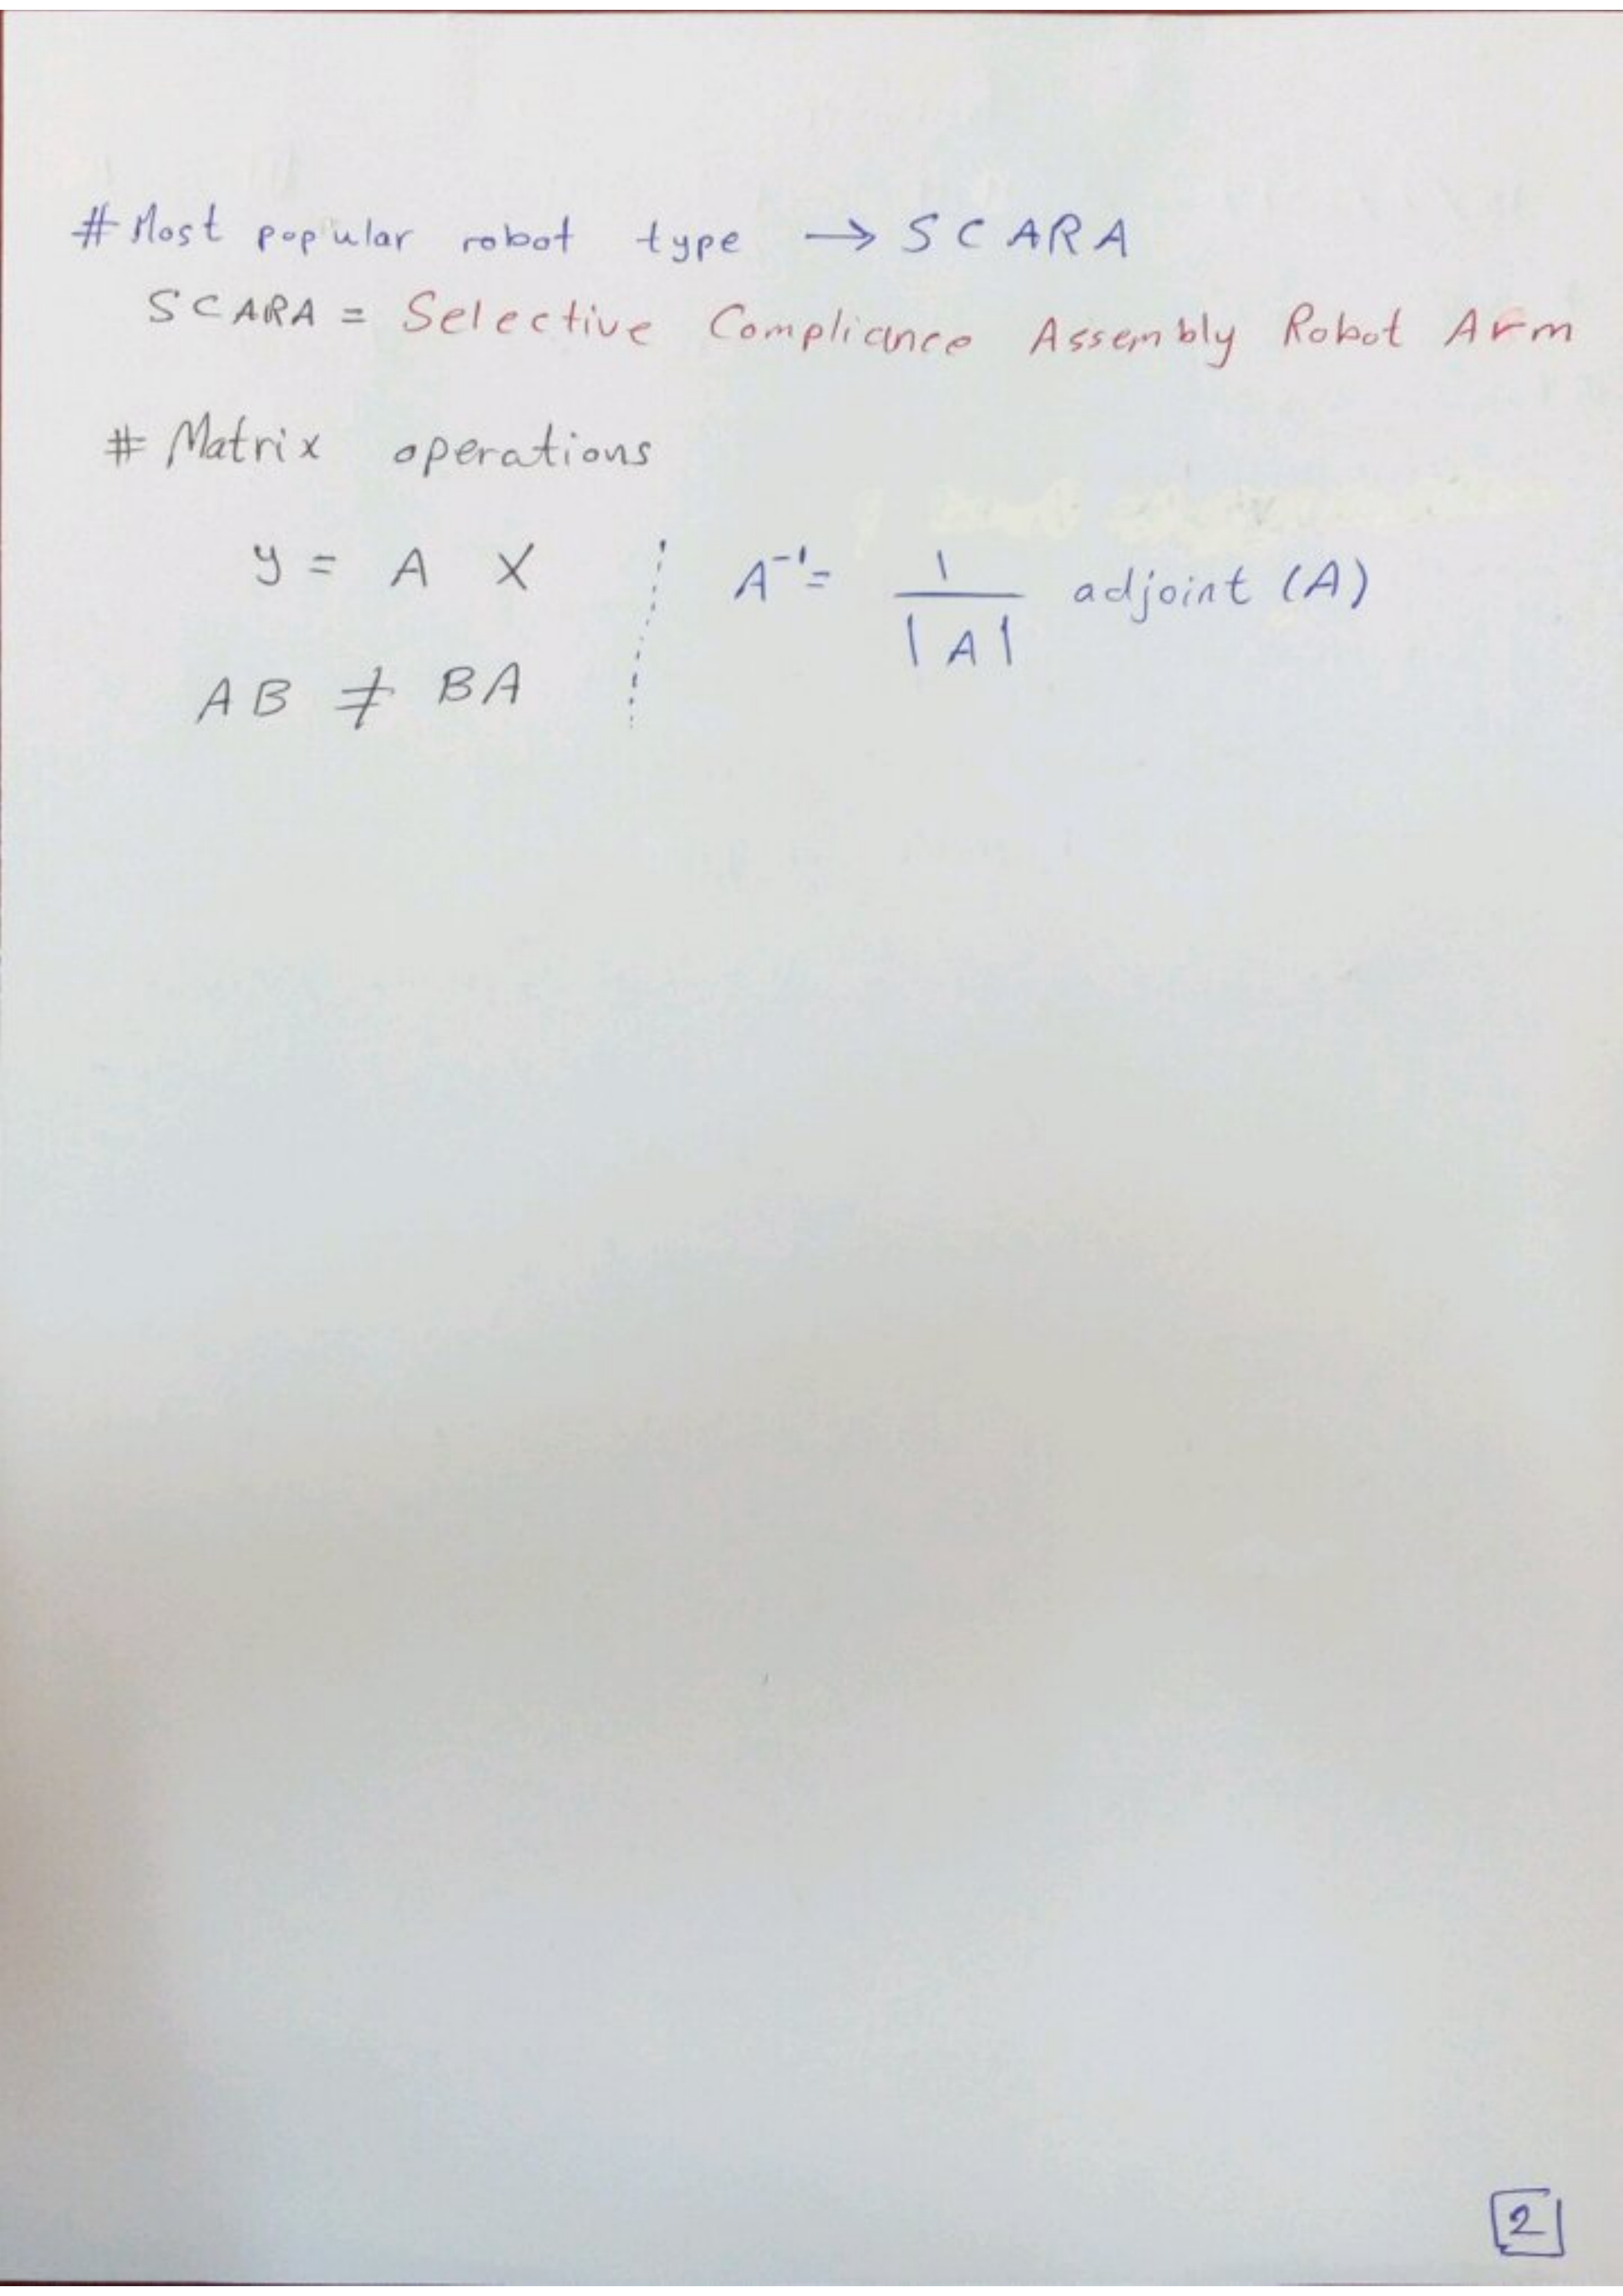 # Most popular robot type → SCARA
SCARA = Selective Compliance Assembly Robot Arm
# Matrix operations
y = A X
AB ≠ BA
A⁻¹ = 1 / |A| adjoint (A)
2